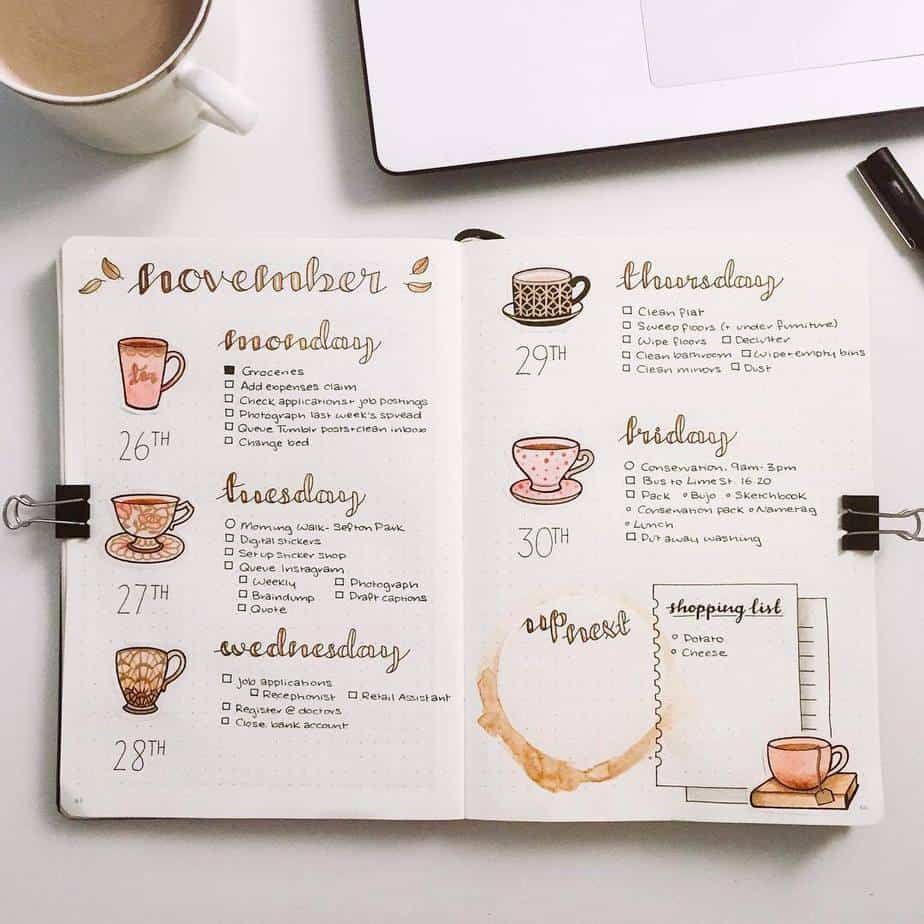 november
monday
tea
26TH
Groceries
Add expenses claim
Check applications + job postings
Photograph last week's spread
Queue Tumblr posts + clean inbox
Change bed
tuesday
27TH
Morning Walk - Sefton Park
Digital stickers
Set up sticker shop
Queue Instagram
Weekly Photograph
Braindump Draft captions
Quote
wednesday
28TH
Job applications
Receptionist Retail Assistant
Register @ doctors
Close bank account
thursday
29TH
Clean flat
Sweep floors (+ under furniture)
Wipe floors Declutter
Clean bathroom Wipe + empty bins
Clean mirrors Dust
friday
30TH
Conservation. 9am - 3pm
Bus to Lime St. 16.20
Pack Bujo Sketchbook
Conservation pack Nametag
Lunch
Put away washing
up next
shopping list
Potato
Cheese